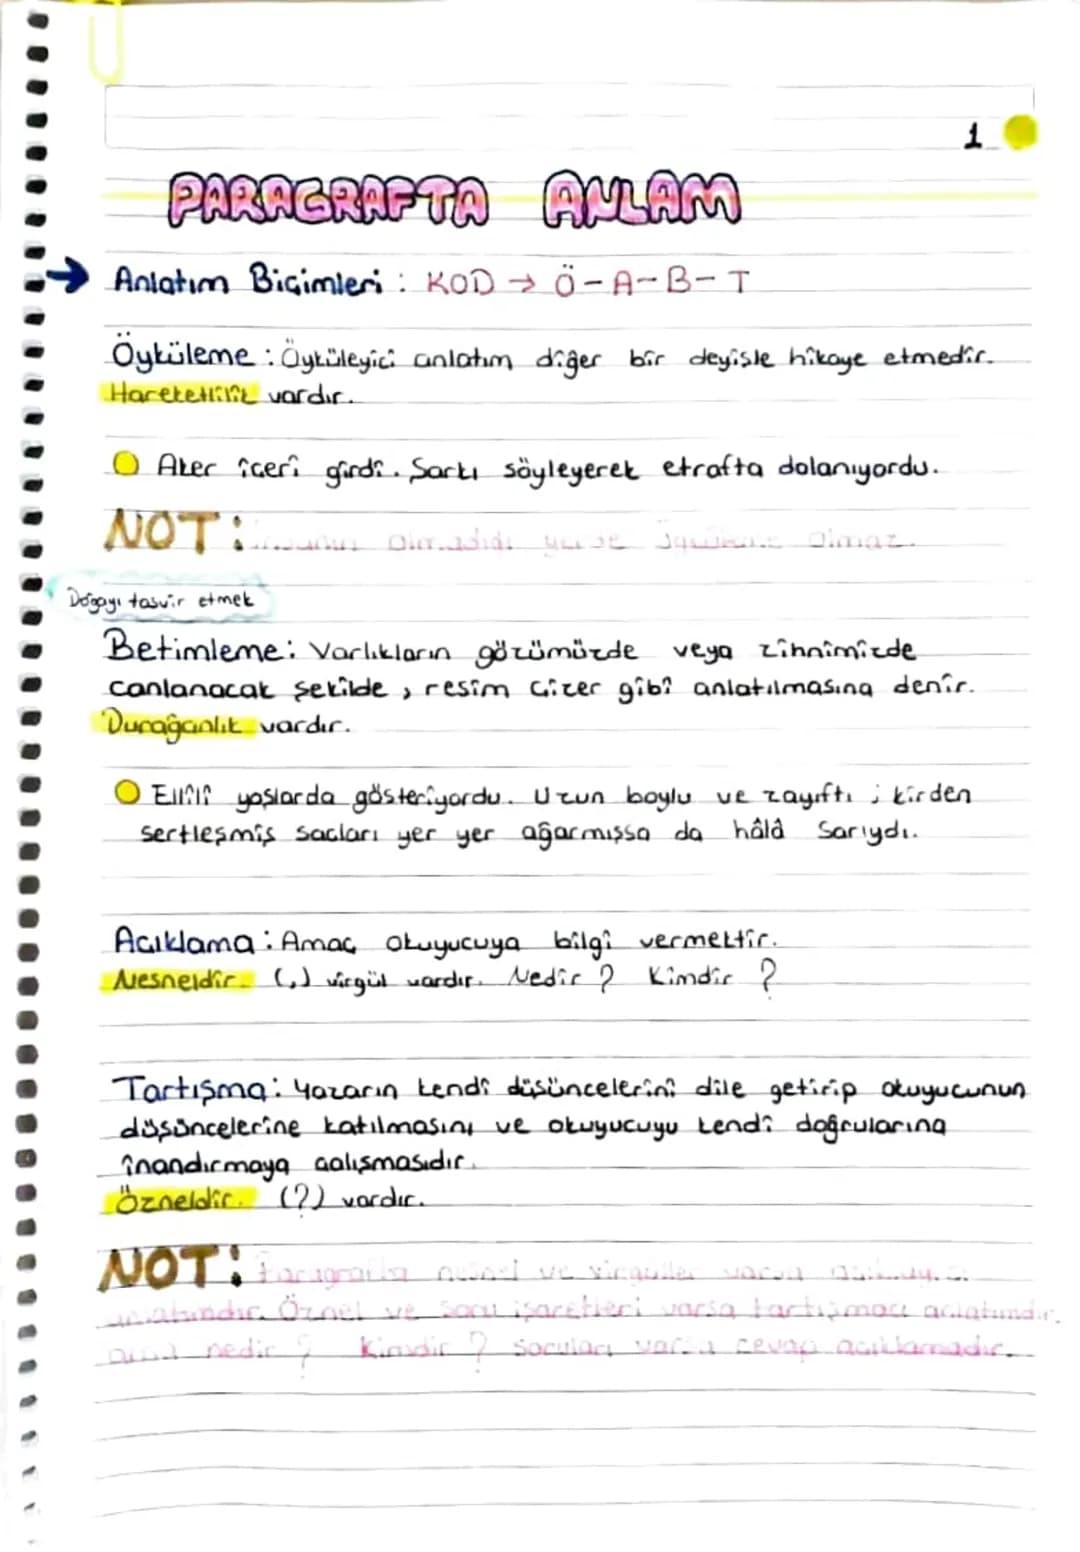 1
PARAGRAFTA ANLAM
→ Anlatım Biçimleri : KOD → Ö-A-B-T
Öyküleme : Öyküleyici anlatım diğer bir deyişle hikaye etmedir.
Hareketlilik vardır.
Aker içeri girdi. Şarkı söyleyerek etrafta dolanıyordu.
NOT: olmadığı yerde olmaz.
Doğayı tasvir etmek
Betimleme: Varlıkların gözümüzde veya zihnimizde
canlanacak şekilde, resim çizer gibi anlatılmasına denir.
Durağanlık vardır.
Ellili yaşlarda gösteriyordu. Uzun boylu ve zayıftı ; kirden
sertleşmiş saçları yer yer ağarmışsa da hâlâ sarıydı.
Açıklama : Amaç okuyucuya bilgi vermektir.
Nesneldir. (,) virgül vardır. Nedir ? Kimdir ?
Tartışma : Yazarın kendi düşüncelerini dile getirip okuyucunun
düşüncelerine katılmasını ve okuyucuyu kendi doğrularına
inandırmaya çalışmasıdır.
Özneldir. (?) vardır.
NOT: Paragrafta nesnel ve virgüller varsa
anlatımdır. Öznel ve soru işaretleri varsa tartışmacı anlatımdır.
ama nedir ? Kimdir ? soruları varsa cevap açıklamadır.